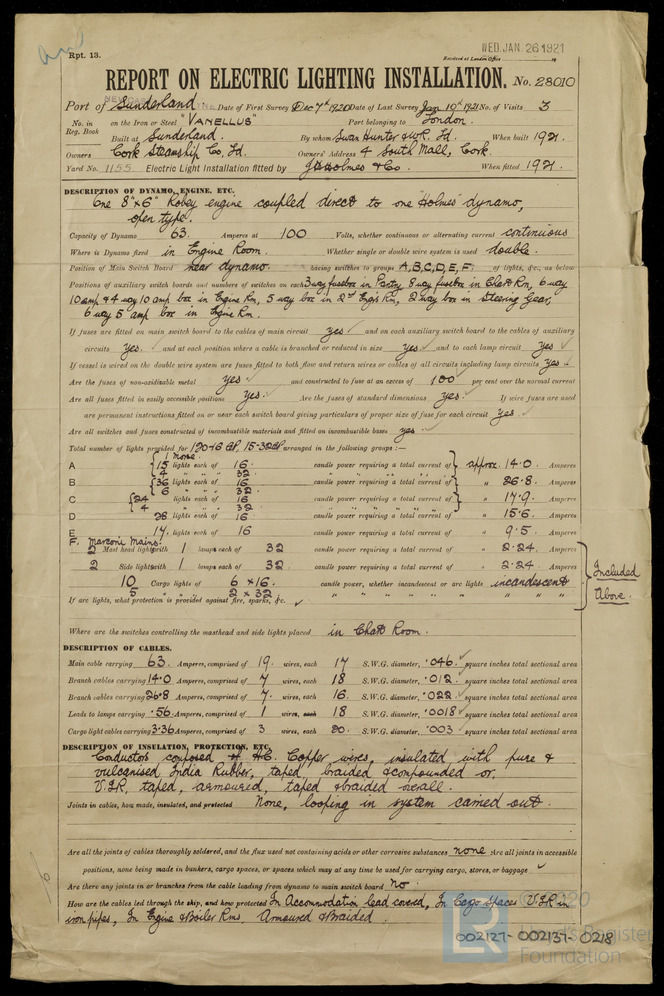 WED. JAN. 26 1921
Rpt. 13.
Received at London Office
REPORT ON ELECTRIC LIGHTING INSTALLATION. No. 28010
Port of Sunderland Date of First Survey Dec 7th 1920 Date of Last Survey Jan 10th 1921 No. of Visits 3
No. in Reg. Book on the Iron or Steel "VANELLUS" Port belonging to London.
Built at Sunderland. By whom Swan Hunter & W.R. Ld. When built 1921.
Owners Cork Steamship Co, Ld. Owners' Address 4 South Mall, Cork.
Yard No. 1155 Electric Light Installation fitted by J H Holmes & Co. When fitted 1921.
DESCRIPTION OF DYNAMO, ENGINE, ETC.
One 8"x6" Robey engine coupled direct to one "Holmes" dynamo,
open type.
Capacity of Dynamo 63. Amperes at 100 Volts, whether continuous or alternating current continuous
Where is Dynamo fixed in Engine Room. Whether single or double wire system is used double.
Position of Main Switch Board near dynamo. having switches to groups A, B, C, D, E, F. of lights, &c., as below
Positions of auxiliary switch boards and numbers of switches on each 3 way fusebox in Pantry 8 way fusebox in Chart Rm, 6 way
10 amp & 4 way 10 amp box in Engine Rm, 5 way box in 2nd Eng's Rm, 2 way box in Steering Gear,
6 way 5 amp box in Engine Rm.
If fuses are fitted on main switch board to the cables of main circuit yes and on each auxiliary switch board to the cables of auxiliary
circuits yes. and at each position where a cable is branched or reduced in size yes and to each lamp circuit yes
If vessel is wired on the double wire system are fuses fitted to both flow and return wires or cables of all circuits including lamp circuits yes
Are the fuses of non-oxidizable metal yes. and constructed to fuse at an excess of 100 per cent over the normal current
Are all fuses fitted in easily accessible positions yes. Are the fuses of standard dimensions yes. If wire fuses are used
are permanent instructions fitted on or near each switch board giving particulars of proper size of fuse for each circuit yes.
Are all switches and fuses constructed of incombustible materials and fitted on incombustible bases yes.
Total number of lights provided for 120-16 CP, 15-32 CP arranged in the following groups :—
1 morse
A 15 lights each of 16. candle power requiring a total current of approx. 14.0. Amperes
4 " " " 32
B 36 lights each of 16 candle power requiring a total current of " 26.8 Amperes
6 " " " 32
C 24 lights each of 16 candle power requiring a total current of " 17.9 Amperes
4 " " " 32
D 28 lights each of 16 candle power requiring a total current of " 15.6 Amperes
E 17. lights each of 16 candle power requiring a total current of " 9.5 Amperes
F. Marconi Mains.
2 Mast head light with 1 lamps each of 32 candle power requiring a total current of " 2.24. Amperes
2 Side light with 1 lamps each of 32 candle power requiring a total current of " 2.24 Amperes
Included Above.
10 Cargo lights of 6 x 16. candle power, whether incandescent or arc lights incandescent
5 2 x 32 " " " " " " " "
If arc lights, what protection is provided against fire, sparks, &c.
Where are the switches controlling the masthead and side lights placed in Chart Room.
DESCRIPTION OF CABLES.
Main cable carrying 63. Amperes, comprised of 19. wires, each 17 S.W.G. diameter, .046. square inches total sectional area
Branch cables carrying 14.0 Amperes, comprised of 7. wires, each 18 S.W.G. diameter, .012. square inches total sectional area
Branch cables carrying 26.8 Amperes, comprised of 7. wires, each 16. S.W.G. diameter, .022 square inches total sectional area
Leads to lamps carrying .56 Amperes, comprised of 1 wires, each 18 S.W.G. diameter, .0018 square inches total sectional area
Cargo light cables carrying 3.36 Amperes, comprised of 3 wires, each 20. S.W.G. diameter, .003 square inches total sectional area
DESCRIPTION OF INSULATION, PROTECTION, ETC.
Conductors composed of H.C. Copper wires, insulated with pure &
vulcanised India Rubber, taped, braided & compounded or,
V.I.R, taped, armoured, taped & braided overall.
Joints in cables, how made, insulated, and protected None, looping in system carried out.
Are all the joints of cables thoroughly soldered, and the flux used not containing acids or other corrosive substances none Are all joints in accessible
positions, none being made in bunkers, cargo spaces, or spaces which may at any time be used for carrying cargo, stores, or baggage
Are there any joints in or branches from the cable leading from dynamo to main switch board no.
How are the cables led through the ship, and how protected In Accommodation lead covered, In Cargo Spaces V.I.R in
iron pipes, In Engine & Boiler Rms. Armoured & Braided.
© 2020
LR Lloyd's Register
Foundation
002127-002137-0218